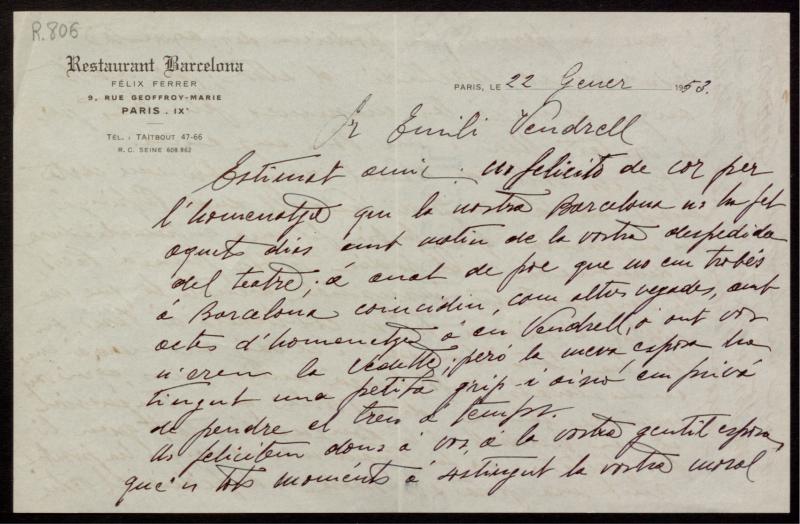 R.806
Restaurant Barcelona
FÉLIX FERRER
9, RUE GEOFFROY-MARIE
PARIS. IXe
TÉL. : TAITBOUT 47-66
R. C. SEINE 608.862
PARIS, LE 22 Gener 1953.
Sr Emili Vendrell
Estimat amic: us felicito de cor per
l'homenatge que la nostra Barcelona us ha fet
aquets dias amb motiu de la vostra despedida
del teatre; á anat de poc que no em trobés
á Barcelona coincidin, com altres vegades, amb
actes d'homenatge á en Vendrell, ó ont vos
n'eren la vedette; peró la meva esposa ha
tingut una petita grip i aixó em privá
de pendre el tren á temps.
Us felicitem dons á vos, a la vostra gentil esposa,
que'n tots moments á sostingut la vostra moral